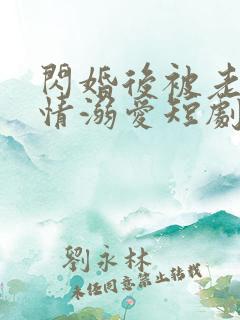 閃婚後被老
情溺愛短劇
劉永林
未經同意禁止轉載